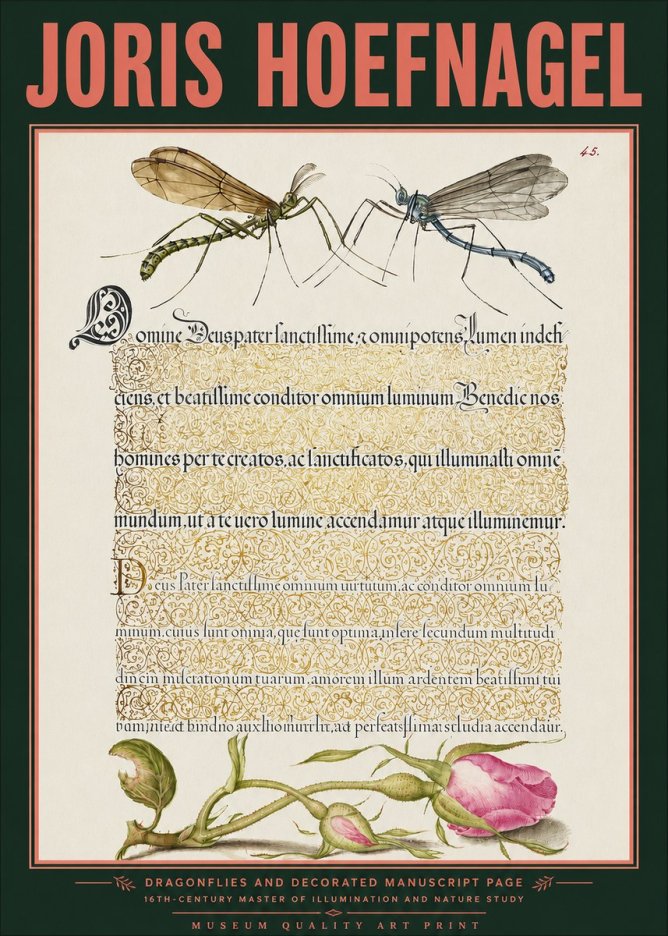 JORIS HOEFNAGEL
45.
Domine Deus pater sanctissime, & omnipotens, Lumen indefi
ciens, et beatissime conditor omnium luminum Benedic nos
homines per te creatos, ac sanctificatos, qui illuminasti omnē
mundum, ut a te uero lumine accendamur atque illuminemur.
Deus Pater sanctissime omnium uirtutum, ac conditor omnium lu
minum, cuius sunt omnia, que sunt optima, insere secundum multitudi
tuarum, amorem illum ardentem beatissimi tui
accendair.
DRAGONFLIES AND DECORATED MANUSCRIPT PAGE
16TH-CENTURY MASTER OF ILLUMINATION AND NATURE STUDY
MUSEUM QUALITY ART PRINT